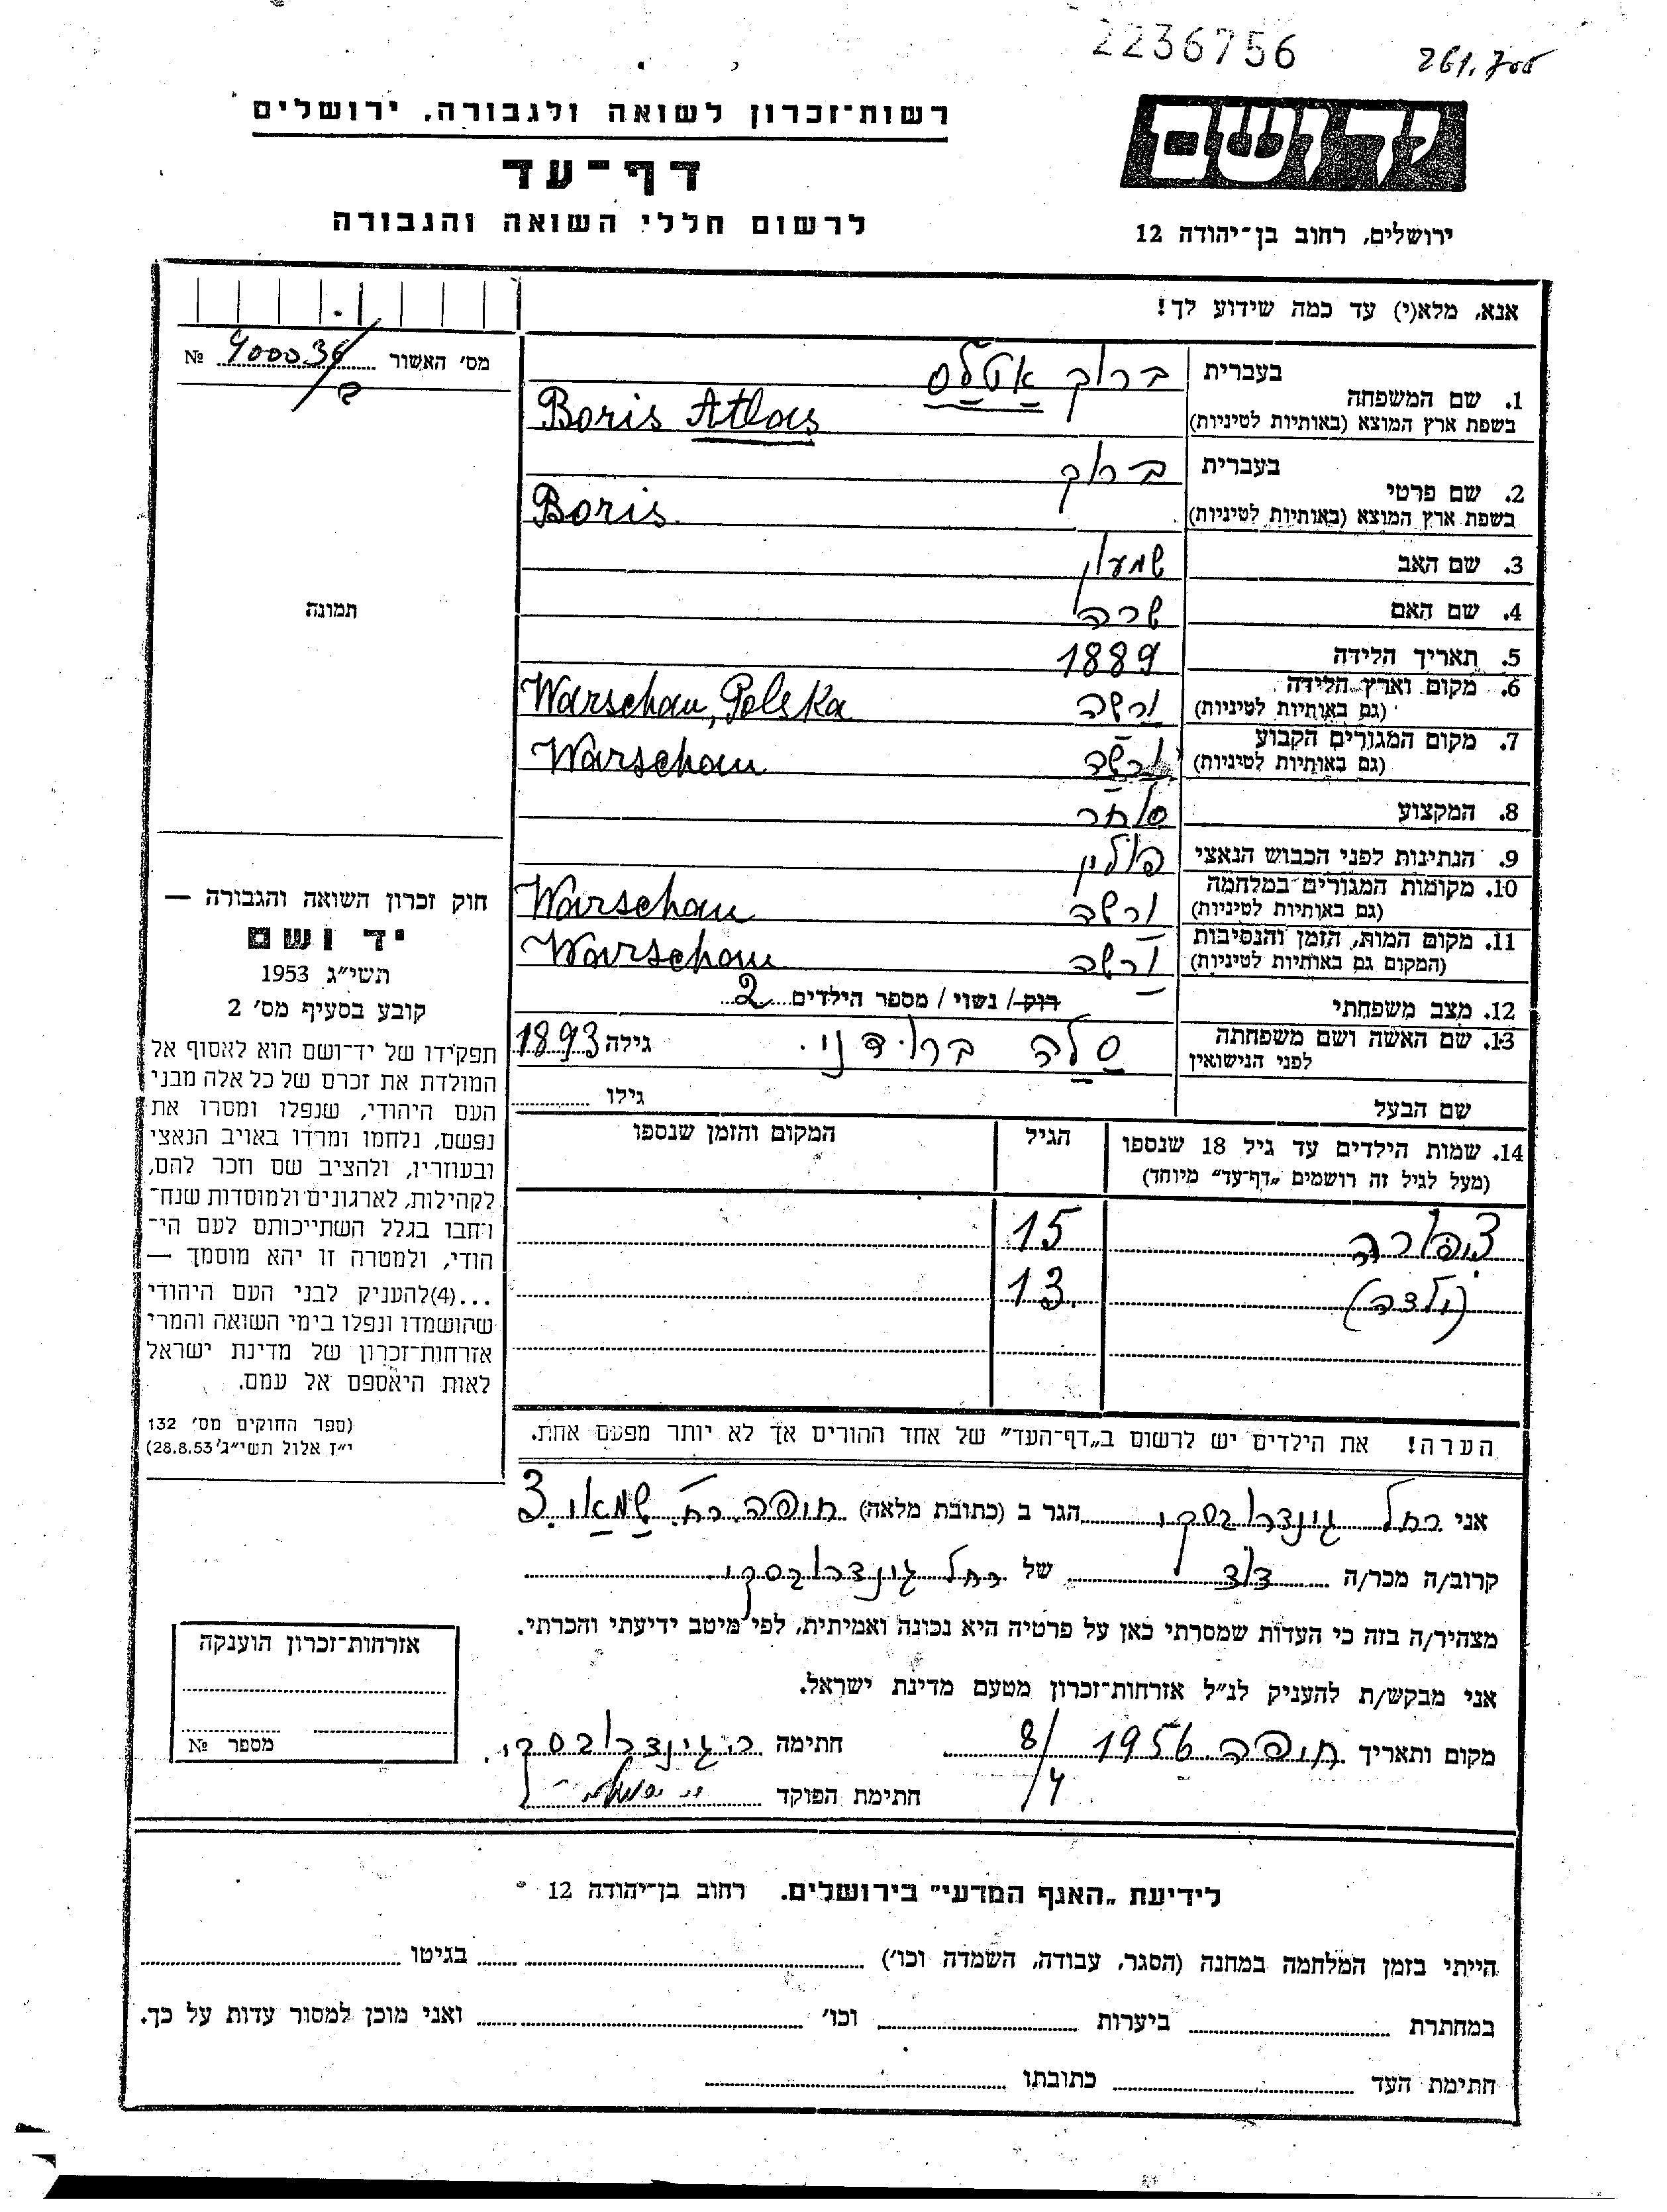 2236756
רשות־זכרון לשואה ולגבורה. ירושלים
יד ושם
דף־עד
לרשום חללי השואה והגבורה
ירושלים, רחוב בן־יהודה 12
אנא, מלא(י) עד כמה שידוע לך!
מס' האשור 400034 №
1. שם המשפחה
בעברית ברוך אטלס
בשפת ארץ המוצא (באותיות לטיניות) Boris Atlas
2. שם פרטי
בעברית ברוך
בשפת ארץ המוצא (באותיות לטיניות) Boris
3. שם האב שמעון
4. שם האם שרה
5. תאריך הלידה 1889
6. מקום וארץ הלידה
(גם באותיות לטיניות) ורשה Warschau, Polska
7. מקום המגורים הקבוע
(גם באותיות לטיניות) ורשה Warschau
8. המקצוע סוחר
9. הנתינות לפני הכבוש הנאצי פולין
10. מקומות המגורים במלחמה
(גם באותיות לטיניות) ורשה Warschau
11. מקום המות, הזמן והנסיבות
(המקום גם באותיות לטיניות) ורשה Warschau
12. מצב משפחתי רוק / נשוי / מספר הילדים 2
13. שם האשה ושם משפחתה
לפני הנישואין סלה ברוידני גילה 1893
שם הבעל גילו
14. שמות הילדים עד גיל 18 שנספו הגיל המקום והזמן שנספו
(מעל לגיל זה רושמים „דף־עד" מיוחד)
צפורה 15
13
הערה! את הילדים יש לרשום ב„דף־העד" של אחד ההורים אך לא יותר מפעם אחת.
תמונה
חוק זכרון השואה והגבורה —
יד ושם
תשי"ג 1953
קובע בסעיף מס' 2
תפקידו של יד־ושם הוא לאסוף אל
המולדת את זכרם של כל אלה מבני
העם היהודי, שנפלו ומסרו את
נפשם, נלחמו ומרדו באויב הנאצי
ובעוזריו, ולהציב שם וזכר להם,
לקהילות, לארגונים ולמוסדות שנח־
רחבו בגלל השתייכותם לעם הי־
הודי, ולמטרה זו יהא מוסמך —
...(4) להעניק לבני העם היהודי
שהושמדו ונפלו בימי השואה והמרי
אזרחות־זכרון של מדינת ישראל
לאות היאספם אל עמם.
(ספר החוקים מס' 132
י"ז אלול תשי"ג 28.8.53)
אני רחל גונצרובסקי הגר ב (כתובת מלאה) חיפה רח' שמאי 3
קרוב/ה מכר/ה של רחל גונצרובסקי
מצהיר/ה בזה כי העדות שמסרתי כאן על פרטיה היא נכונה ואמיתית, לפי מיטב ידיעתי והכרתי.
אני מבקש/ת להעניק לנ"ל אזרחות־זכרון מטעם מדינת ישראל.
מקום ותאריך חיפה 1956 8/4 חתימה ר. גינצרובסקי
חתימת הפוקד
אזרחות־זכרון הוענקה
מספר №
לידיעת „האגף המדעי" בירושלים. רחוב בן־יהודה 12
הייתי בזמן המלחמה במחנה (הסגר, עבודה, השמדה וכו') בגיטו
במחתרת ביערות וכו' ואני מוכן למסור עדות על כך.
חתימת העד כתובתו